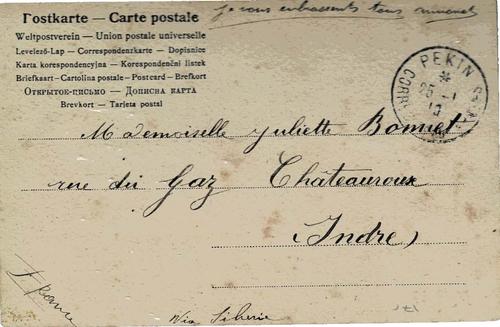 Postkarte — Carte postale
Weltpostverein — Union postale universelle
Levelező-Lap — Correspondenzkarte — Dopisnice
Karta korespondencyjna — Korespondenční lístek
Briefkaart - Cartolina postale - Postcard - Brefkort
Открытое-письмо — Дописна карта
Brevkort — Tarjeta postal
je vous embrassent tous
PEKIN
25 - 1
Mademoiselle Juliette Bonnet
rue du Gaz Châteauroux
(Indre)
France
Via Siberie